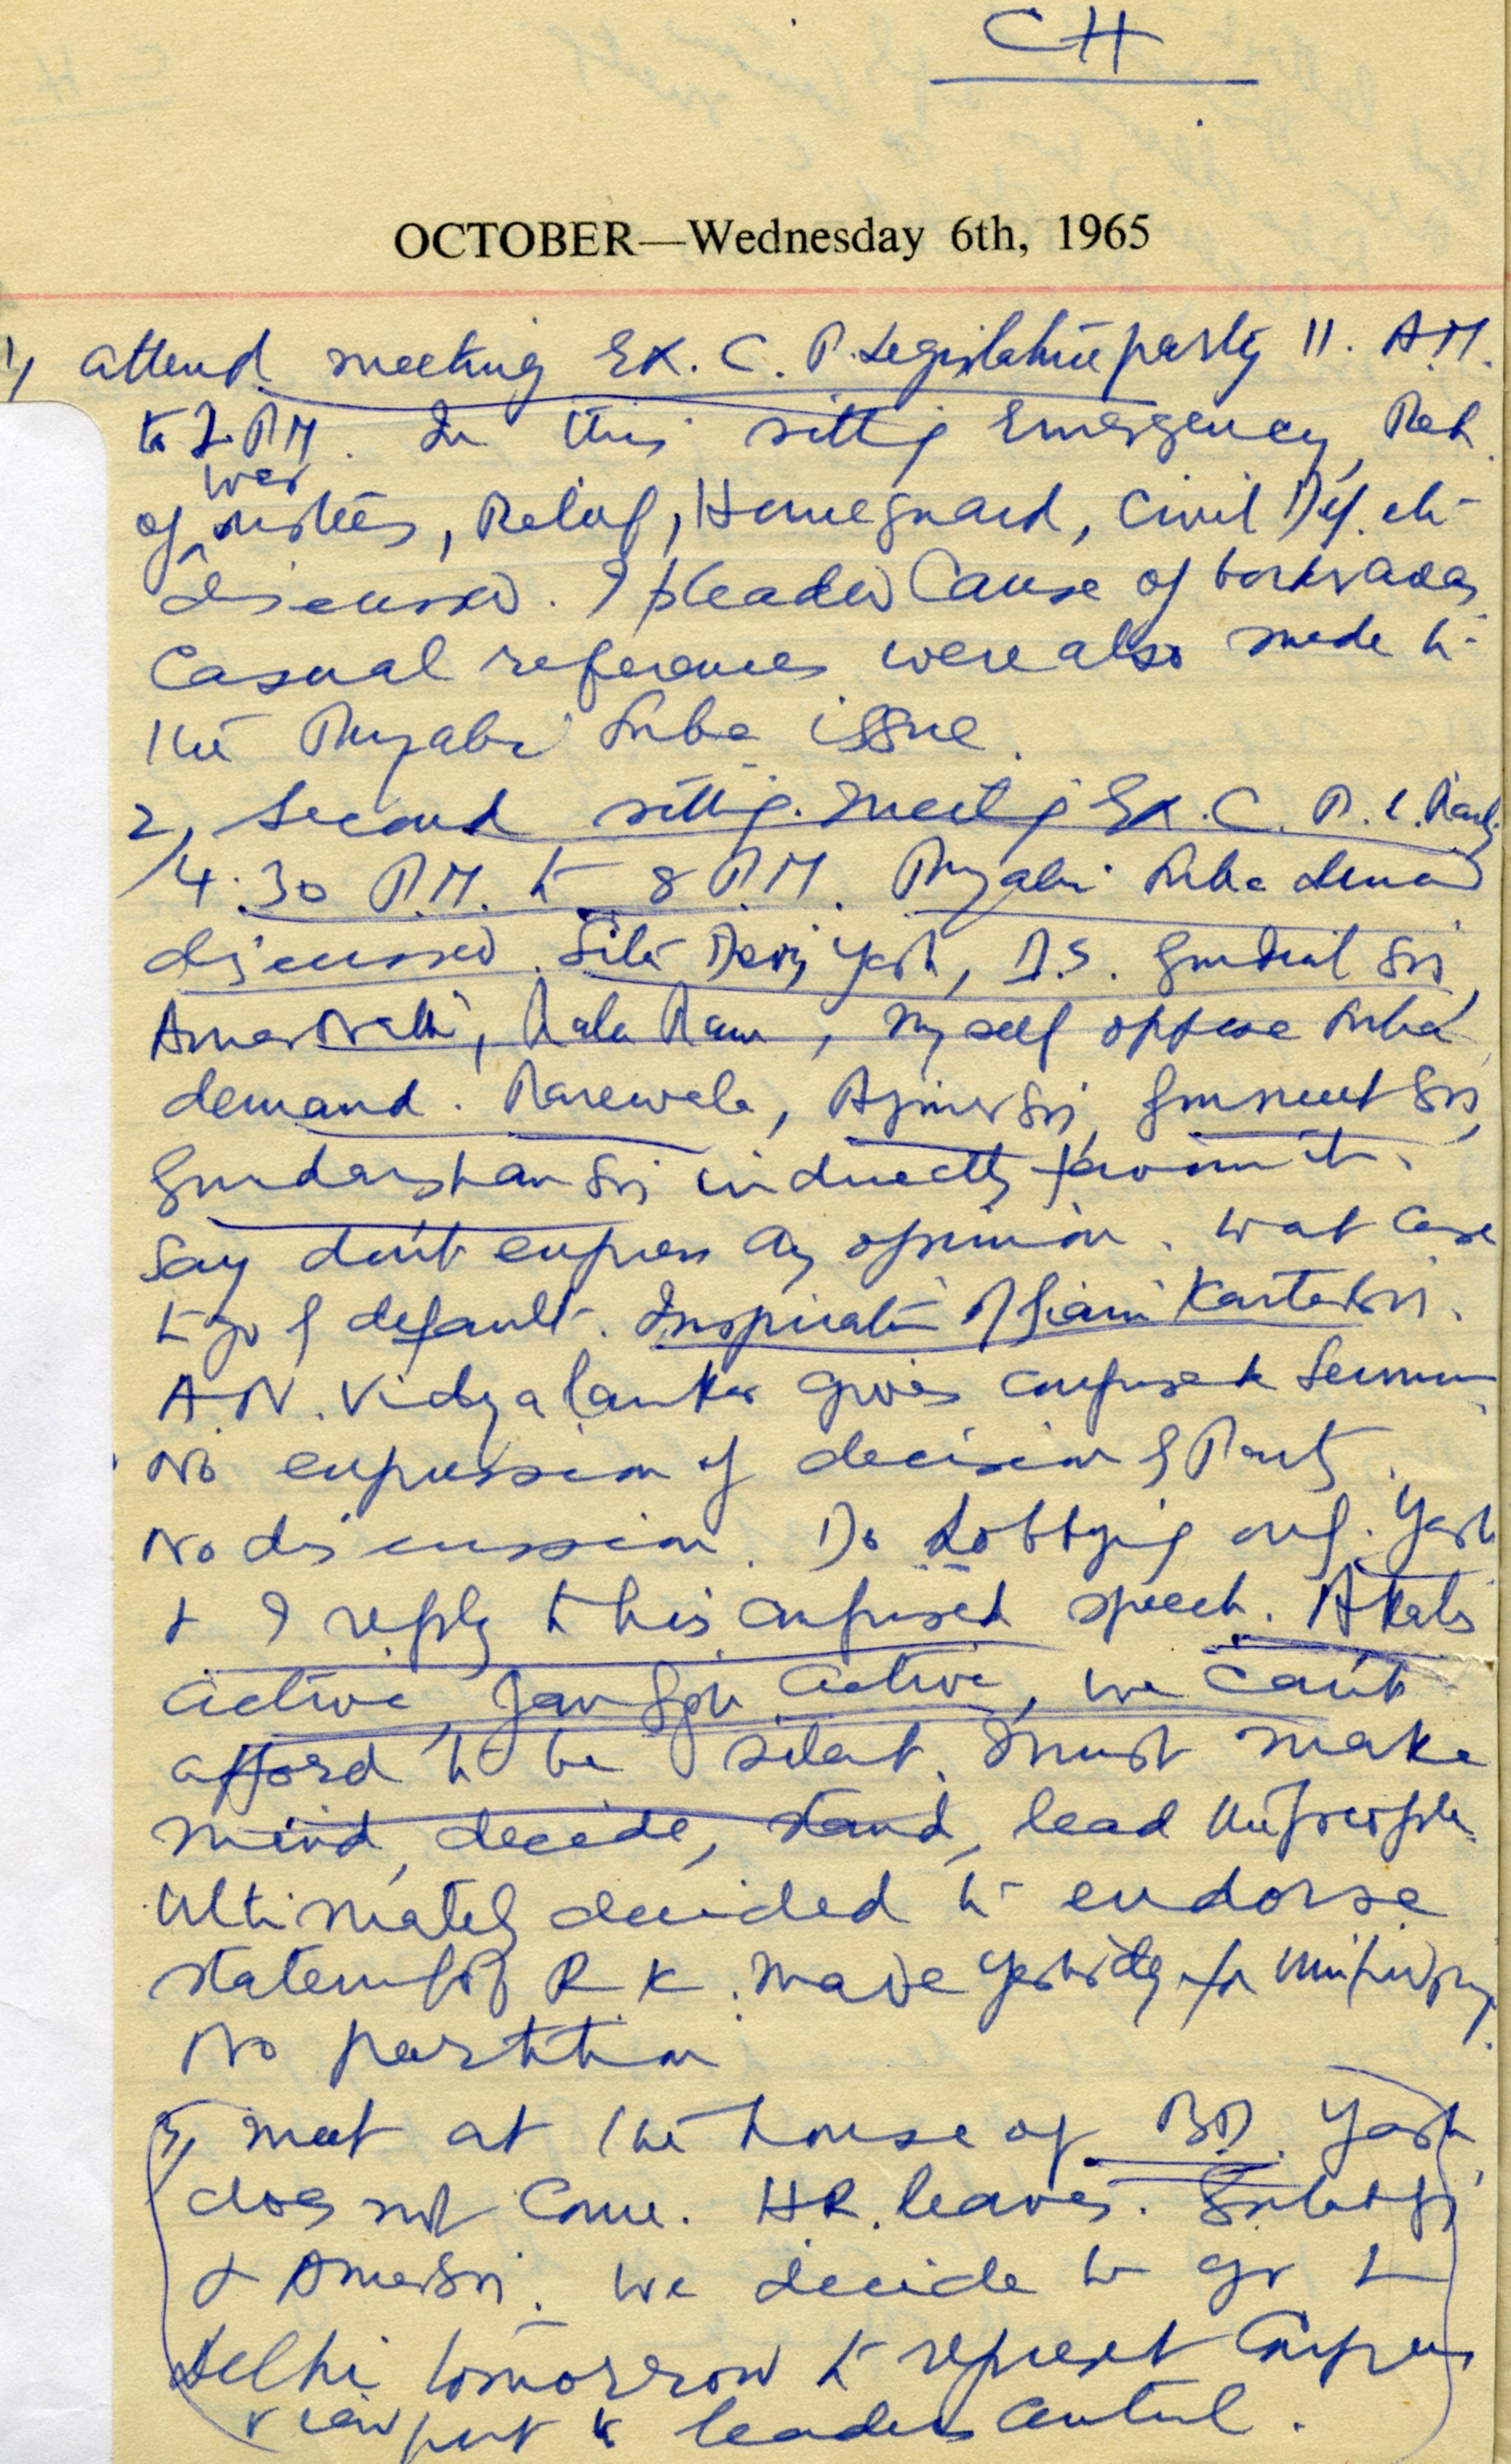 CH
OCTOBER—Wednesday 6th, 1965
1) attend meeting Ex. C. P. Legislative party 11. A.M.
to 2. P.M. In this sitting Emergency, Reh.
of war , Relief, Homeguard, Civil Def. etc
discussed. I pleaded Cause of
Casual references were also made to
the Punjabi Suba issue.
2, Second sitting. Meeting Ex. C. P. L. Party
4.30 P.M. to 8 P.M. Punjabi Suba demand
discussed. Sita Devi, Yash, D.S. Gurdial Sing,
Amar Nath, Rala Ram, myself oppose Suba
demand. Rarewala, Ajmer Sing, Gurmeet Sing,
Gurdarshan Sing indirectly favour it.
Say don't express any opinion. want case
to go of default. Inspiration of Giani Kartar Sing.
A.N. Vidyalankar gives confused Sermon
No expression of decision of Party.
No discussion. Do Lobbying only. Yash
& I reply to his confused speech. Akalis
active, Jan Sgh active, we can't
afford to be silent. Must make
mind, decide, stand, lead the people.
Ultimately decided to endorse
statement of R K. made yesterday for
No partition
3, meet at the house of BD. Yash
does not come. HR. leaves.
& Amar Sing. we decide to go to
Delhi tomorrow to represent Congress
view point to leaders Central.